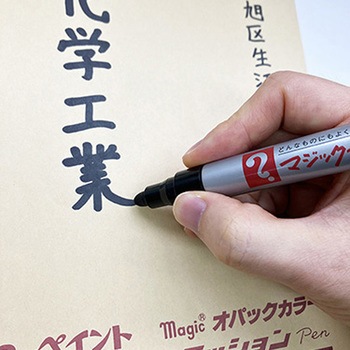 旭区生活
化学工業
どんなものにもよく
マジック
?
Magic® オパックカラー
ペイント
ッション Pen